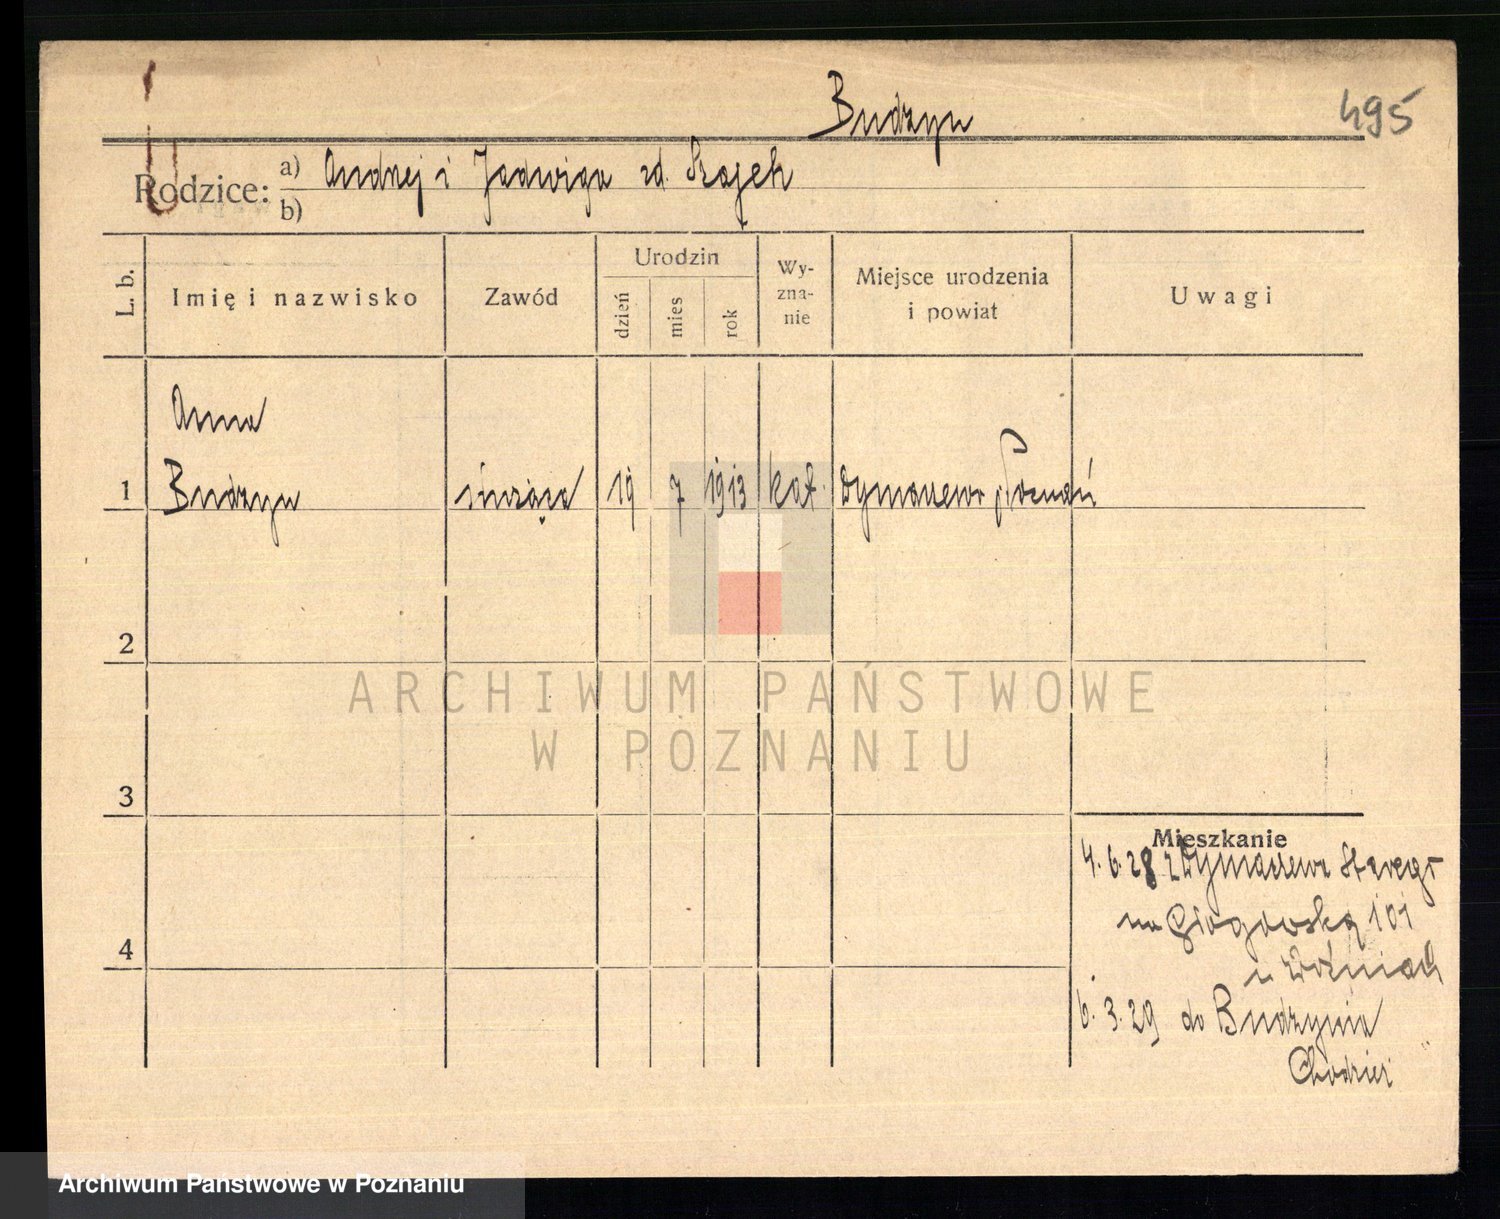 Budzyn
495
Rodzice: a) Andrzej i Jadwiga zd. Szajek
b)
L. b.
Imię i nazwisko
Zawód
Urodzin
dzień
mies
rok
Wy-
zna-
nie
Miejsce urodzenia
i powiat
Uwagi
Anna
1 Budzyn służąca 19 7 1913 kat. Dymaczewo p. Poznań
2
3
4
ARCHIWUM PAŃSTWOWE
W POZNANIU
Mieszkanie
4. 6. 28 z Dymaczewa Starego
na Głogowską 101
u Woźniak
6. 3. 29 do Budzynia
Chodzież
Archiwum Państwowe w Poznaniu